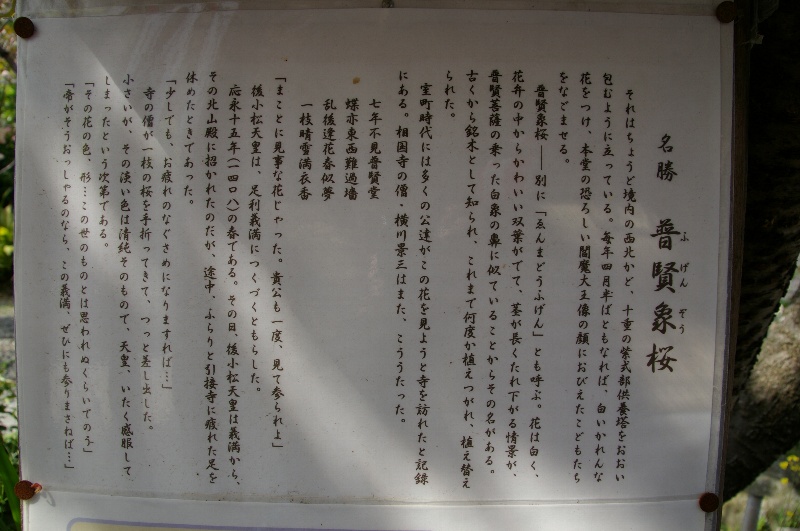 名勝 普賢象桜
ふ げん ぞう
それはちょうど境内の西北かど、十重の紫式部供養塔をおおい
包むように立っている。毎年四月半ばともなれば、白いかれんな
花をつけ、本堂の恐ろしい閻魔大王像の顔におびえたこどもたち
をなごませる。
普賢象桜――別に「ゑんまどうふげん」とも呼ぶ。花は白く、
花弁の中からかわいい双葉がでて、茎が長くたれ下がる情景が、
普賢菩薩の乗った白象の鼻に似ていることからその名がある。
古くから銘木として知られ、これまで何度か植えつがれ、植え替え
られた。
室町時代には多くの公達がこの花を見ようと寺を訪れたと記録
にある。相国寺の僧・横川景三はまた、こううたった。
七年不見普賢堂
蝶亦東西難過墻
乱後逢花春似夢
一枝晴雪満衣香
「まことに見事な花じゃった。貴公も一度、見て参られよ」
後小松天皇は、足利義満につくづくともらした。
応永十五年(一四〇八)の春である。その日、後小松天皇は義満から、
その北山殿に招かれたのだが、途中、ふらりと引接寺に疲れた足を
休めたときであった。
「少しでも、お疲れのなぐさめになりますれば…」
寺の僧が一枝の桜を手折ってきて、つっと差し出した。
小さいが、その淡い色は清純そのもので、天皇、いたく感服して
しまったという次第である。
「その花の色、形…この世のものとは思われぬくらいでのう」
「帝がそうおっしゃるのなら、この義満、ぜひにも参りまさねば…」